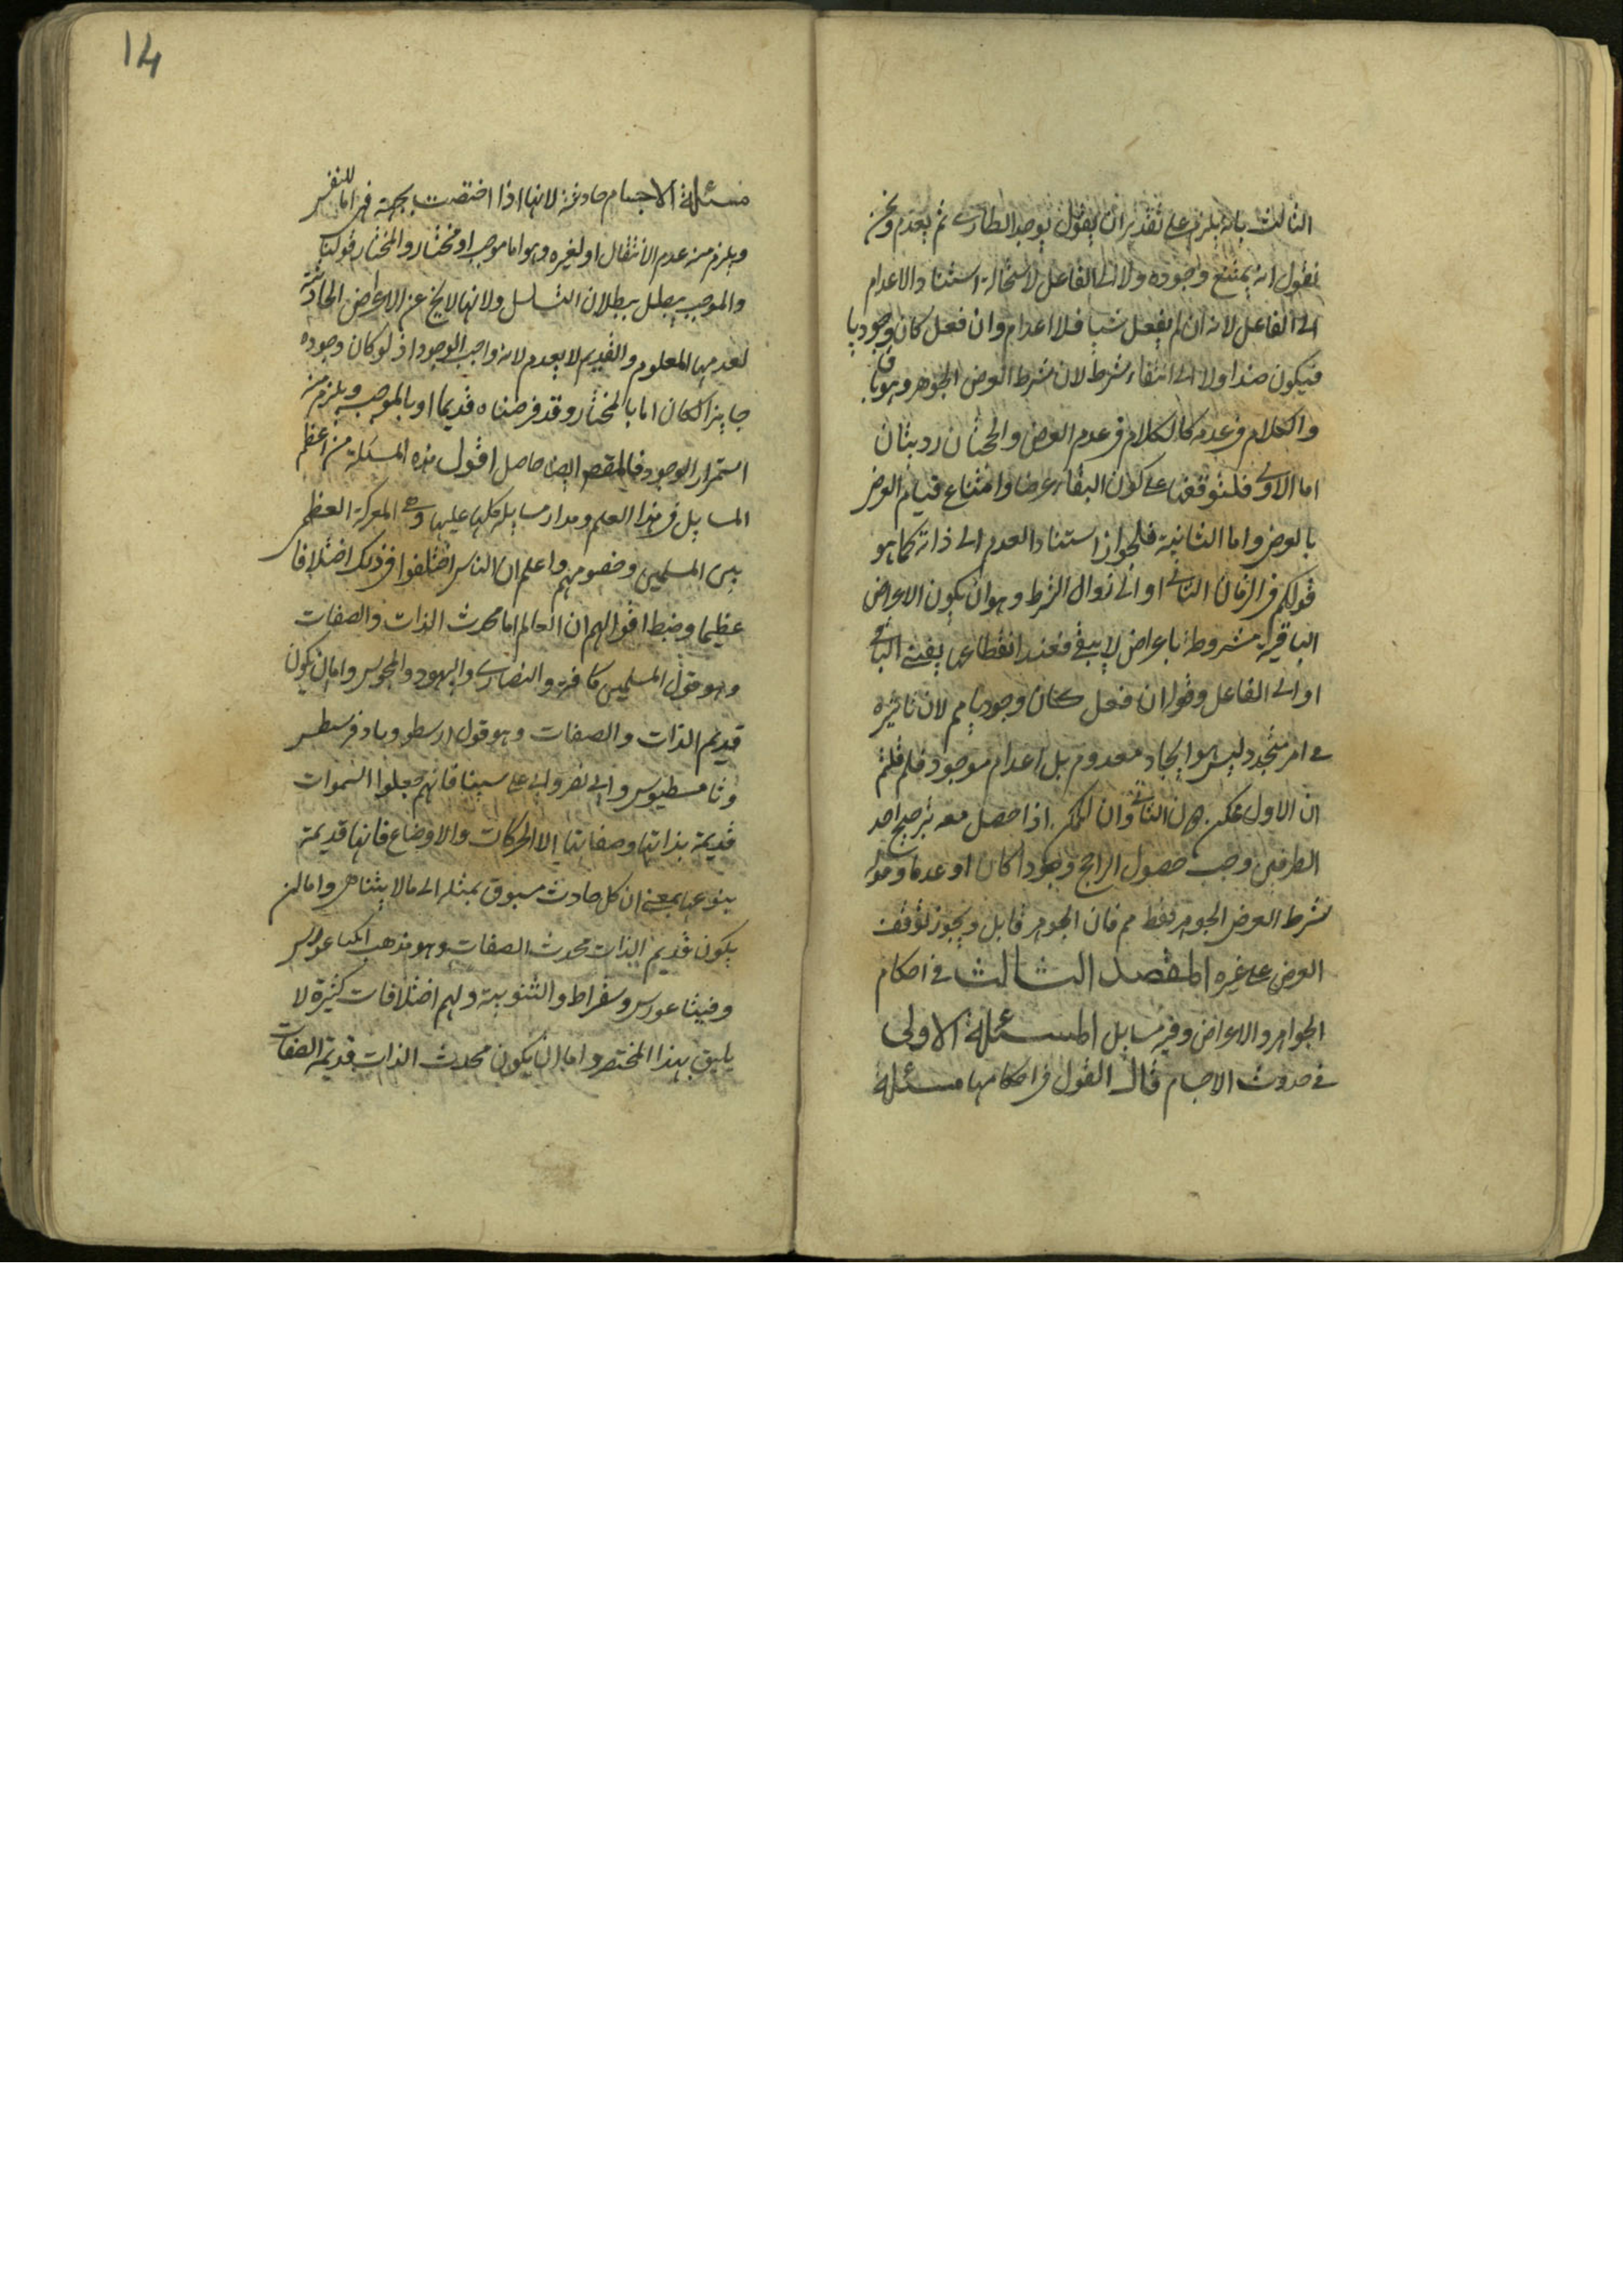 الثالث بانه يلزم على تقدير ان يقول يوجد الطارى ثم يعدم ونحن
نقول انه يمتنع وجوده ولا الى الفاعل لاستحالة استناد الاعدام
الى الفاعل لانه ان لم يفعل شيا فلا اعدام وان فعل كان وجوديا
فيكون ضدا ولا الى انتفاء شرط لان شرط العرض الجوهر وهو باق
والكلام فى عدمه كالكلام فى عدم العرض والحجتان رديتان
اما الاولى فلتوقفها على كون البقاء عرضا وامتناع قيام العرض
بالعرض واما الثانية فلجواز استناد العدم الى ذاته كما هو
قولكم فى الزمان الثانى او الى زوال الشرط وهو ان يكون الاعراض
الباقية مشروطة باعراض لا يبقى فعند انقطاعها يفنى الباقى
او الى الفاعل وقوله ان فعل كان وجوديا مم لان تاثيره
فى امر متجدد ليس هو ايجاد معدوم بل اعدام موجود فلم قلتم
ان الاول ممكن دون الثانى وان الممكن اذا حصل معه ترجيح احد
الطرفين وجب حصول الراجح وجودا كان او عدما وقوله
شرط العرض الجوهر فقط مم فان الجوهر قابل ويجوز توقف
العرض على غيره المقصد الثالث فى احكام
الجواهر والاعراض وفيه مسايل المسئلة الاولى
فى حدوث الاجسام قال القول فى احكامها مسئلة
14
مسئلة الاجسام حادثة لانها اذا اختصت بجهة فهى اما للنفس
ويلزم منه عدم الانتقال او لغيره وهو اما موجب او مختار والمختار قولنا
والموجب يبطل ببطلان التسلسل ولانها لا يخ عن الاعراض الحادثة
لعدمها المعلوم والقديم لا يعدم لانه واجب الوجود اذ لو كان وجوده
جايزا لكان اما بالمختار وقد فرضناه قديما او بالموجب ويلزم منه
استمرار الوجود فالمقصود ايضا حاصل اقول هذه المسئلة من اعظم
المسايل فى هذا العلم ومدار مسايله كلها عليها وهى المعركة العظمى
بين المسلمين وخصومهم واعلم ان الناس اختلفوا فى ذلك اختلافا
عظيما وضبط اقوالهم ان العالم اما محدث الذات والصفات
وهو قول المسلمين كافة والنصارى واليهود والمجوس واما ان يكون
قديم الذات والصفات وهو قول ارسطو وثاوفرسطس
وثامسطيوس وابى نصر وابى على سينا فانهم جعلوا السموات
قديمة بذاتها وصفاتها الا الحركات والاوضاع فانها قديمة
بنوعها بمعنى ان كل حادث مسبوق بمثله الى ما لا يتناهى واما ان
يكون قديم الذات محدث الصفات وهو مذهب انكساغورس
وفيثاغورس وسقراط والثنوية ولهم اختلافات كثيرة لا
يليق بهذا المختصر واما ان يكون محدث الذات قديم الصفات